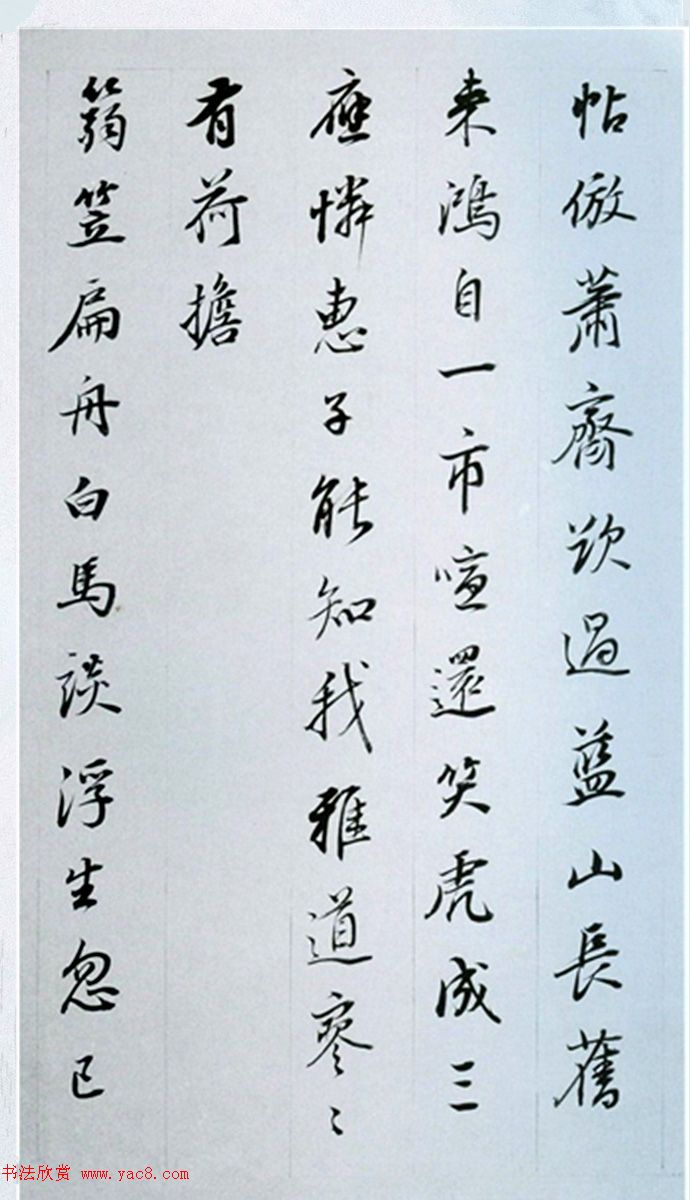 帖倣蕭齋欵過藍山長舊
来鴻自一市喧還笑虎成三
應憐惠子能知我雅道寥〻
有荷擔
篛笠扁舟白馬談浮生忽已
书法欣赏 www.yac8.com